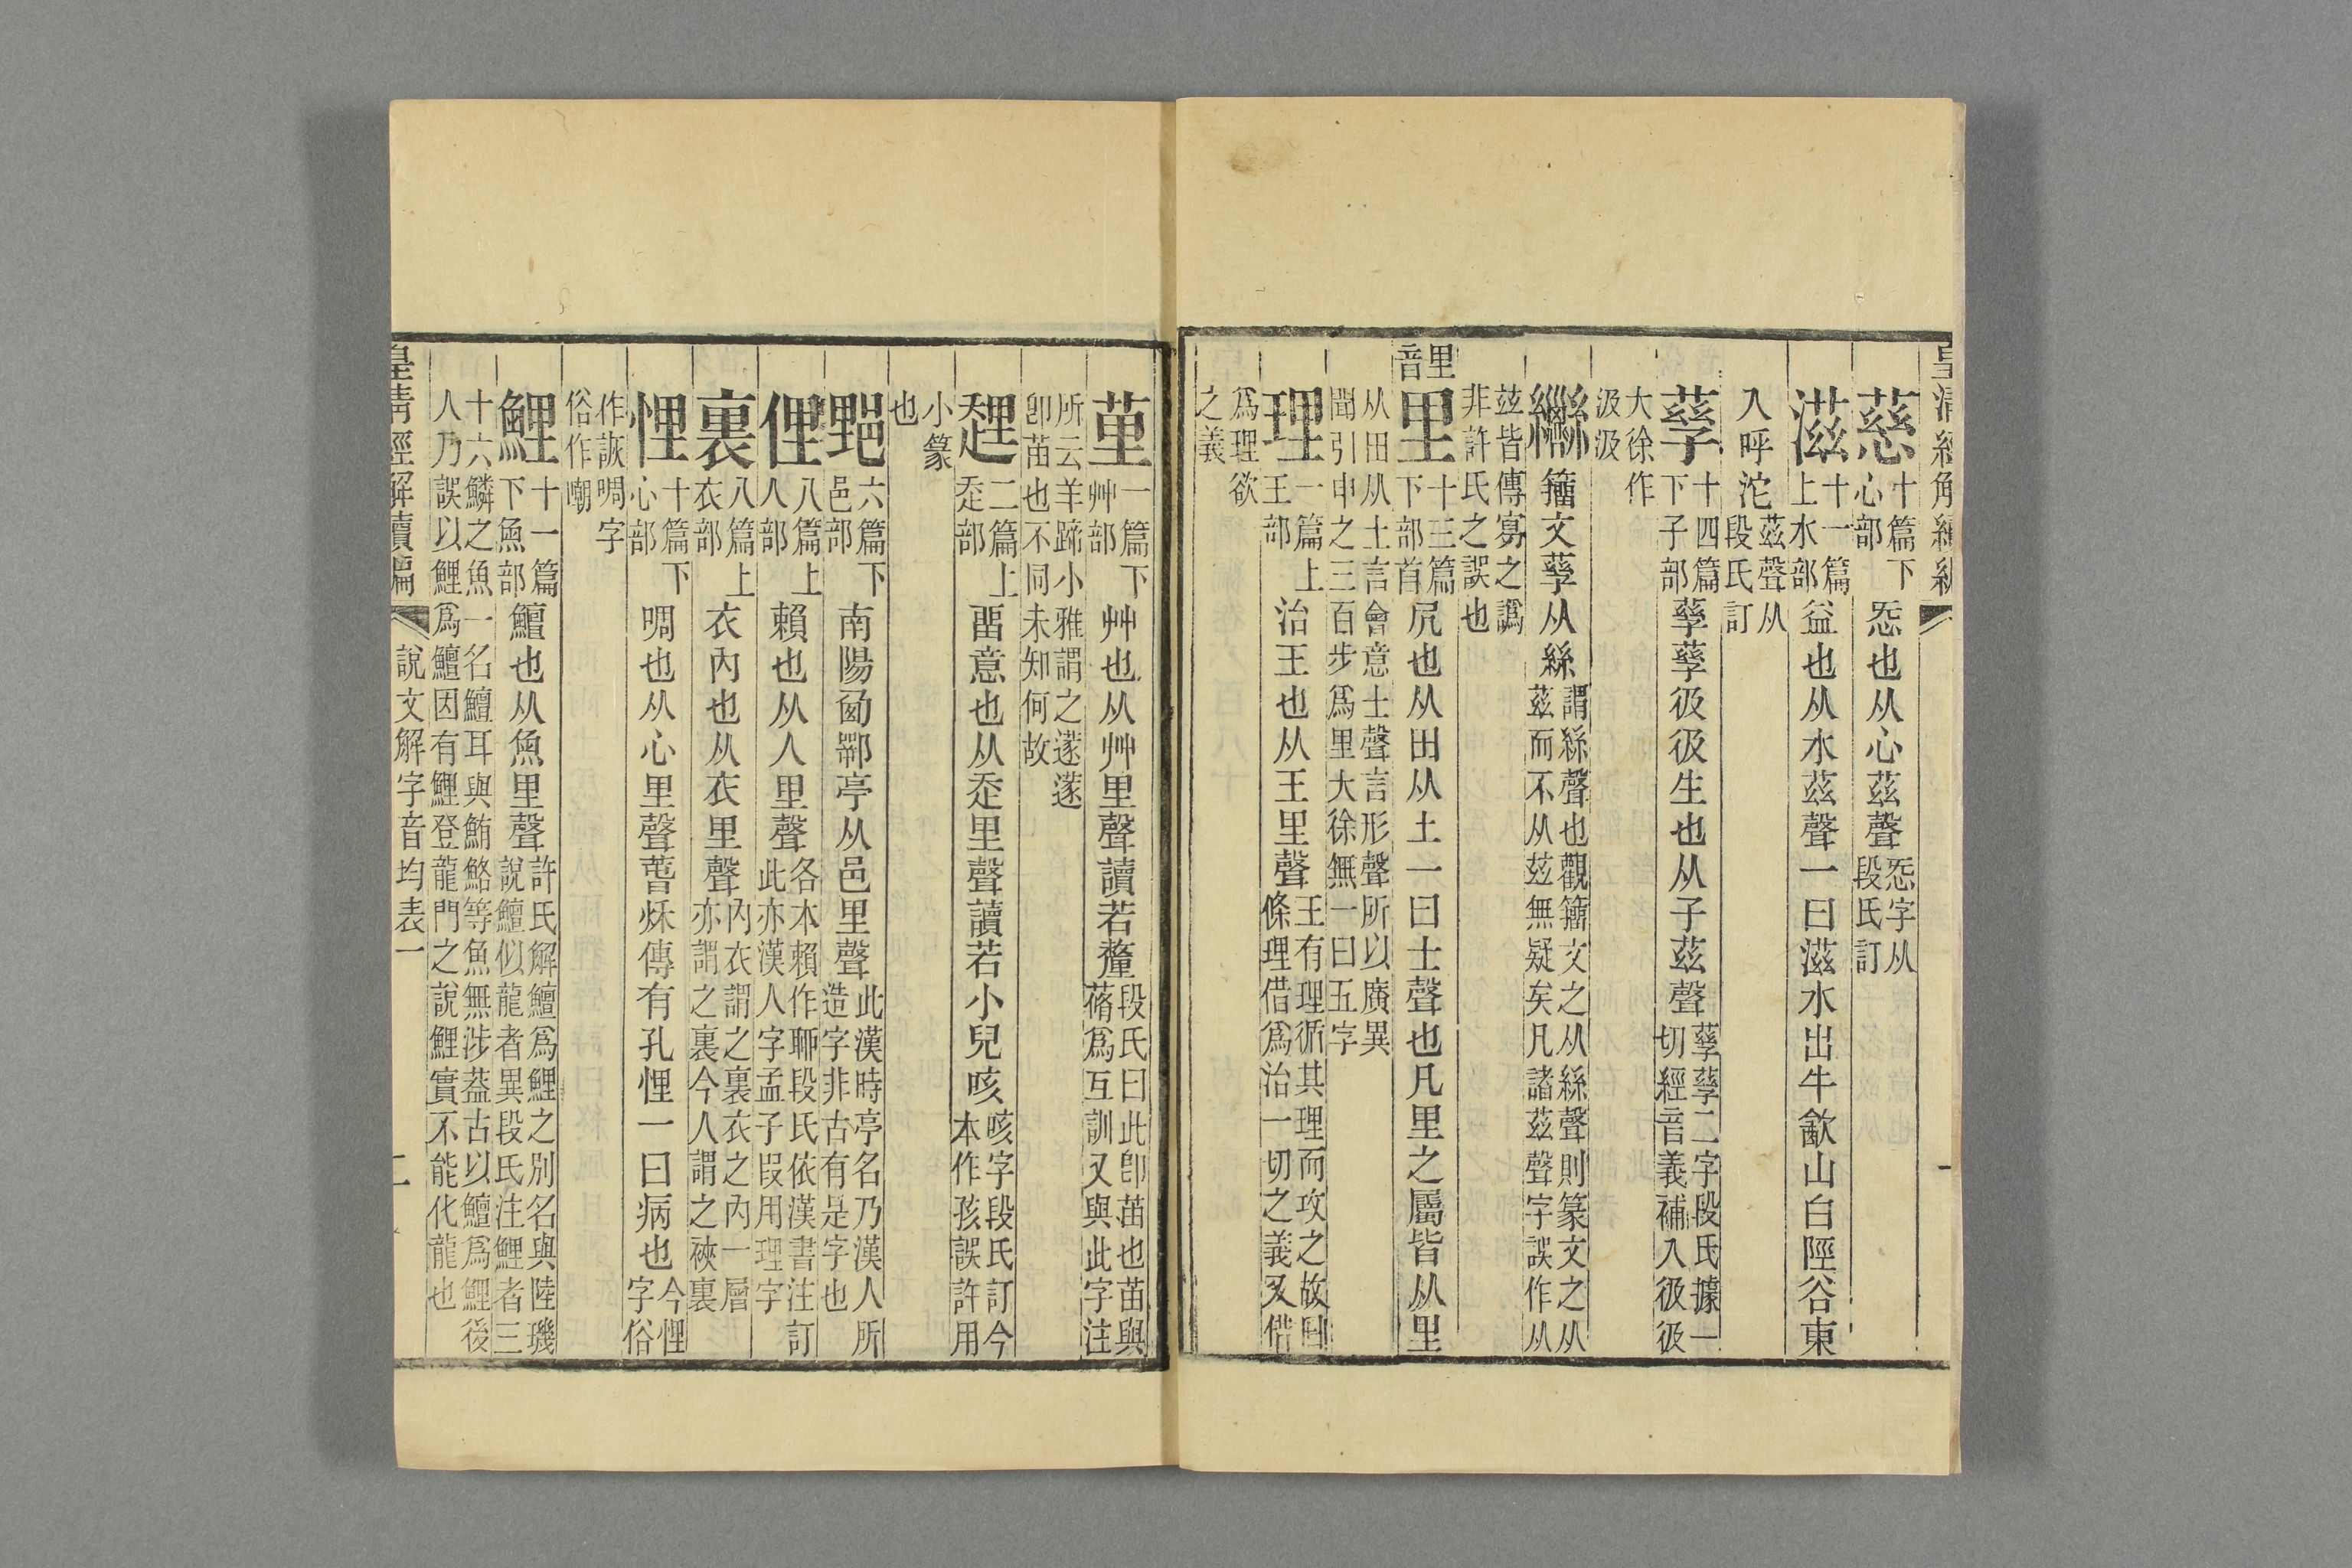 皇清經解續編
慈十篇下心部㤅也从心茲聲㤅字从段氏訂
滋十一篇上水部益也从水茲聲一曰滋水出牛歃山白陘谷東
入呼沱茲聲从段氏訂
孳十四篇下子部孳孳彶彶生也从子茲聲孳孳二字段氏據一切經音義補入彶彶
大徐作汲汲
籒文孳从絲謂絲聲也觀籒文之从絲聲則篆文之从茲而不从玆無疑矣凡諸茲聲字誤作从
玆皆傳寫之譌非許氏之誤也
里音
里十三篇下部首凥也从田从土一曰士聲也凡里之屬皆从里
从田从土言會意士聲言形聲所以廣異聞引申之三百步爲里大徐無一曰五字
理一篇上王部治王也从王里聲王有理循其理而攻之故曰條理借爲治一切之義又借
爲理欲之義
荲一篇下艸部艸也从艸里聲讀若釐段氏曰此卽苗也苗與蓨爲互訓又與此字注
所云羊蹄小雅謂之蓫蓫卽苗也不同未知何故
趩二篇上走部畱意也从走里聲讀若小兒咳咳字段氏訂今本作孩誤許用
小篆也
郹六篇下邑部南陽西鄂亭从邑里聲此漢時亭名乃漢人所造字非古有是字也
俚八篇上人部賴也从人里聲各本賴作聊段氏依漢書注訂此亦漢人字孟子叚用理字
裏八篇上衣部衣內也从衣里聲內衣謂之裏衣之內一層亦謂之裏今人謂之裌裏
悝十篇下心部啁也从心里聲春秋傳有孔悝一曰病也今悝字俗
作詼啁字俗作嘲
鯉十一篇下魚部鱣也从魚里聲許氏解鱣爲鯉之別名與陸璣說鱣似龍者異段氏注鯉者三
十六鱗之魚一名鱣耳與鮪鮥等魚無涉葢古以鱣爲鯉後人乃誤以鯉爲鱣因有鯉登龍門之說鯉實不能代龍也
皇清經解續編 說文解字音均表一 二